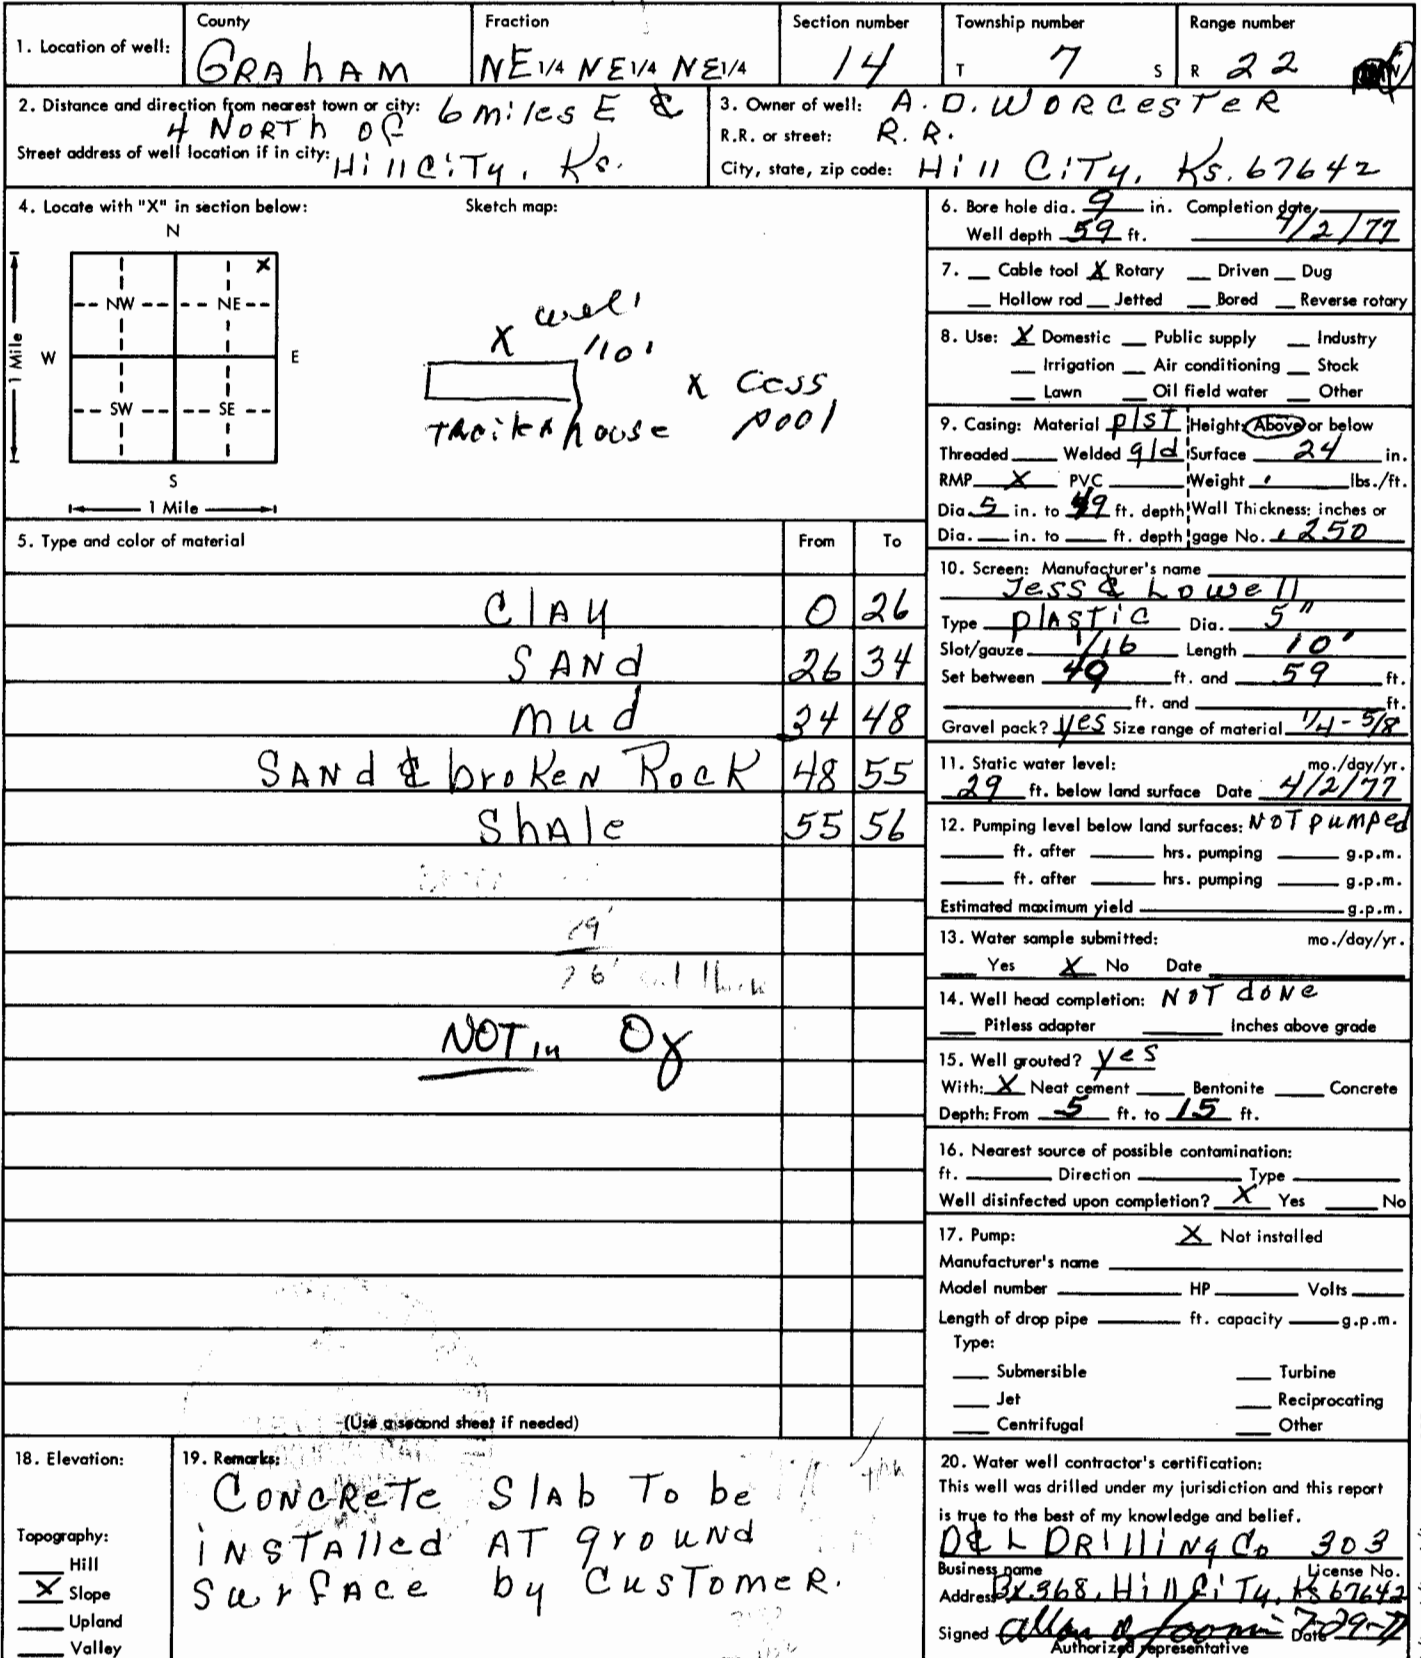 1. Location of well: County GRAhAM Fraction NE 1/4 NE 1/4 NE 1/4 Section number 14 Township number T 7 S Range number R 22
2. Distance and direction from nearest town or city: 6 miles E &
4 NORTh OF
Street address of well location if in city: Hill CiTy, Ks.
3. Owner of well: A. D. WORCesTeR
R.R. or street: R. R.
City, state, zip code: Hill CiTy, Ks. 67642
4. Locate with "X" in section below: Sketch map:
N
X
NW NE
W E
1 Mile
SW SE
S
1 Mile
well
X 110'
X Cess
pool
TRailer house
5. Type and color of material From To
ClAy 0 26
SANd 26 34
mud 34 48
SANd & broKeN RocK 48 55
ShAle 55 56
29'
26'
NOT in Og
(Use a second sheet if needed)
6. Bore hole dia. 9 in. Completion date
Well depth 59 ft. 4/2/77
7. Cable tool X Rotary Driven Dug
Hollow rod Jetted Bored Reverse rotary
8. Use: X Domestic Public supply Industry
Irrigation Air conditioning Stock
Lawn Oil field water Other
9. Casing: Material plsT Height: Above or below
Threaded Welded gld Surface 24 in.
RMP X PVC Weight lbs./ft.
Dia. 5 in. to 49 ft. depth Wall Thickness: inches or
Dia. in. to ft. depth gage No. .250
10. Screen: Manufacturer's name
Jess & Lowell
Type plASTiC Dia. 5"
Slot/gauze 1/16 Length 10'
Set between 49 ft. and 59 ft.
ft. and ft.
Gravel pack? yes Size range of material 1/4 - 5/8
11. Static water level: mo./day/yr.
29 ft. below land surface Date 4/2/77
12. Pumping level below land surfaces: NOT pumped
ft. after hrs. pumping g.p.m.
ft. after hrs. pumping g.p.m.
Estimated maximum yield g.p.m.
13. Water sample submitted: mo./day/yr.
Yes X No Date
14. Well head completion: NOT doNe
Pitless adapter Inches above grade
15. Well grouted? yes
With: X Neat cement Bentonite Concrete
Depth: From 5 ft. to 15 ft.
16. Nearest source of possible contamination:
ft. Direction Type
Well disinfected upon completion? X Yes No
17. Pump: X Not installed
Manufacturer's name
Model number HP Volts
Length of drop pipe ft. capacity g.p.m.
Type:
Submersible Turbine
Jet Reciprocating
Centrifugal Other
18. Elevation:
Topography:
Hill
X Slope
Upland
Valley
19. Remarks:
CONCReTe SlAb To be
iNSTAlled AT gROUNd
SurfACe by CusTOMeR.
20. Water well contractor's certification:
This well was drilled under my jurisdiction and this report
is true to the best of my knowledge and belief.
D&L DRilliNg Co 303
Business name License No.
Address Bx.368, Hill CiTy, Ks 67642
Signed Date 7-29-77
Authorized representative